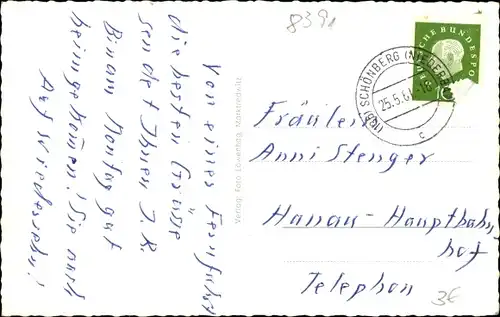 839
Von einer Fernfahrt
die besten Grüsse
sendet Ihnen J. R.
Bin am Montag gut
heimgekommen! Sie auch
Auf Wiedersehn!
Verlag: Foto Löwenhag,
DEUTSCHE BUNDESPOST
10
(16) SCHÖNBERG (NIEDERB
25.5.61
c
Fräulein
Anni Stenger
Hanau-Hauptbahn
hof
Telephon
3€